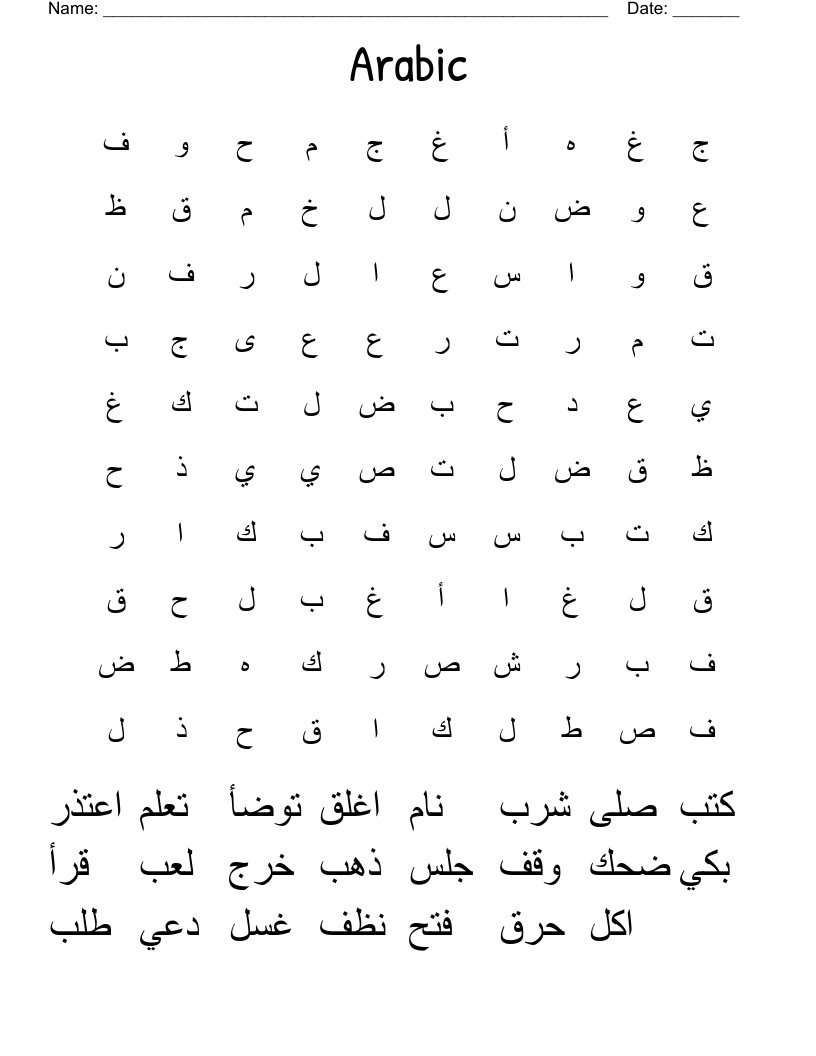 Name: ______________________________________________________ Date: _______
Arabic
ج غ ه أ غ ج م ح و ف
ع و ض ن ل ل خ م ق ظ
ق و ا س ع ا ل ر ف ن
ت م ر ت ر ع ع ى ج ب
ي ع د ح ب ض ل ت ك غ
ظ ق ض ل ت ص ي ي ذ ح
ك ت ب س س ف ب ك ا ر
ق ل غ ا أ غ ب ل ح ق
ف ب ر ش ص ر ك ه ط ض
ف ص ط ل ك ا ق ح ذ ل
كتب صلى شرب نام اغلق توضأ تعلم اعتذر
بكي ضحك وقف جلس ذهب خرج لعب قرأ
اكل حرق فتح نظف غسل دعي طلب